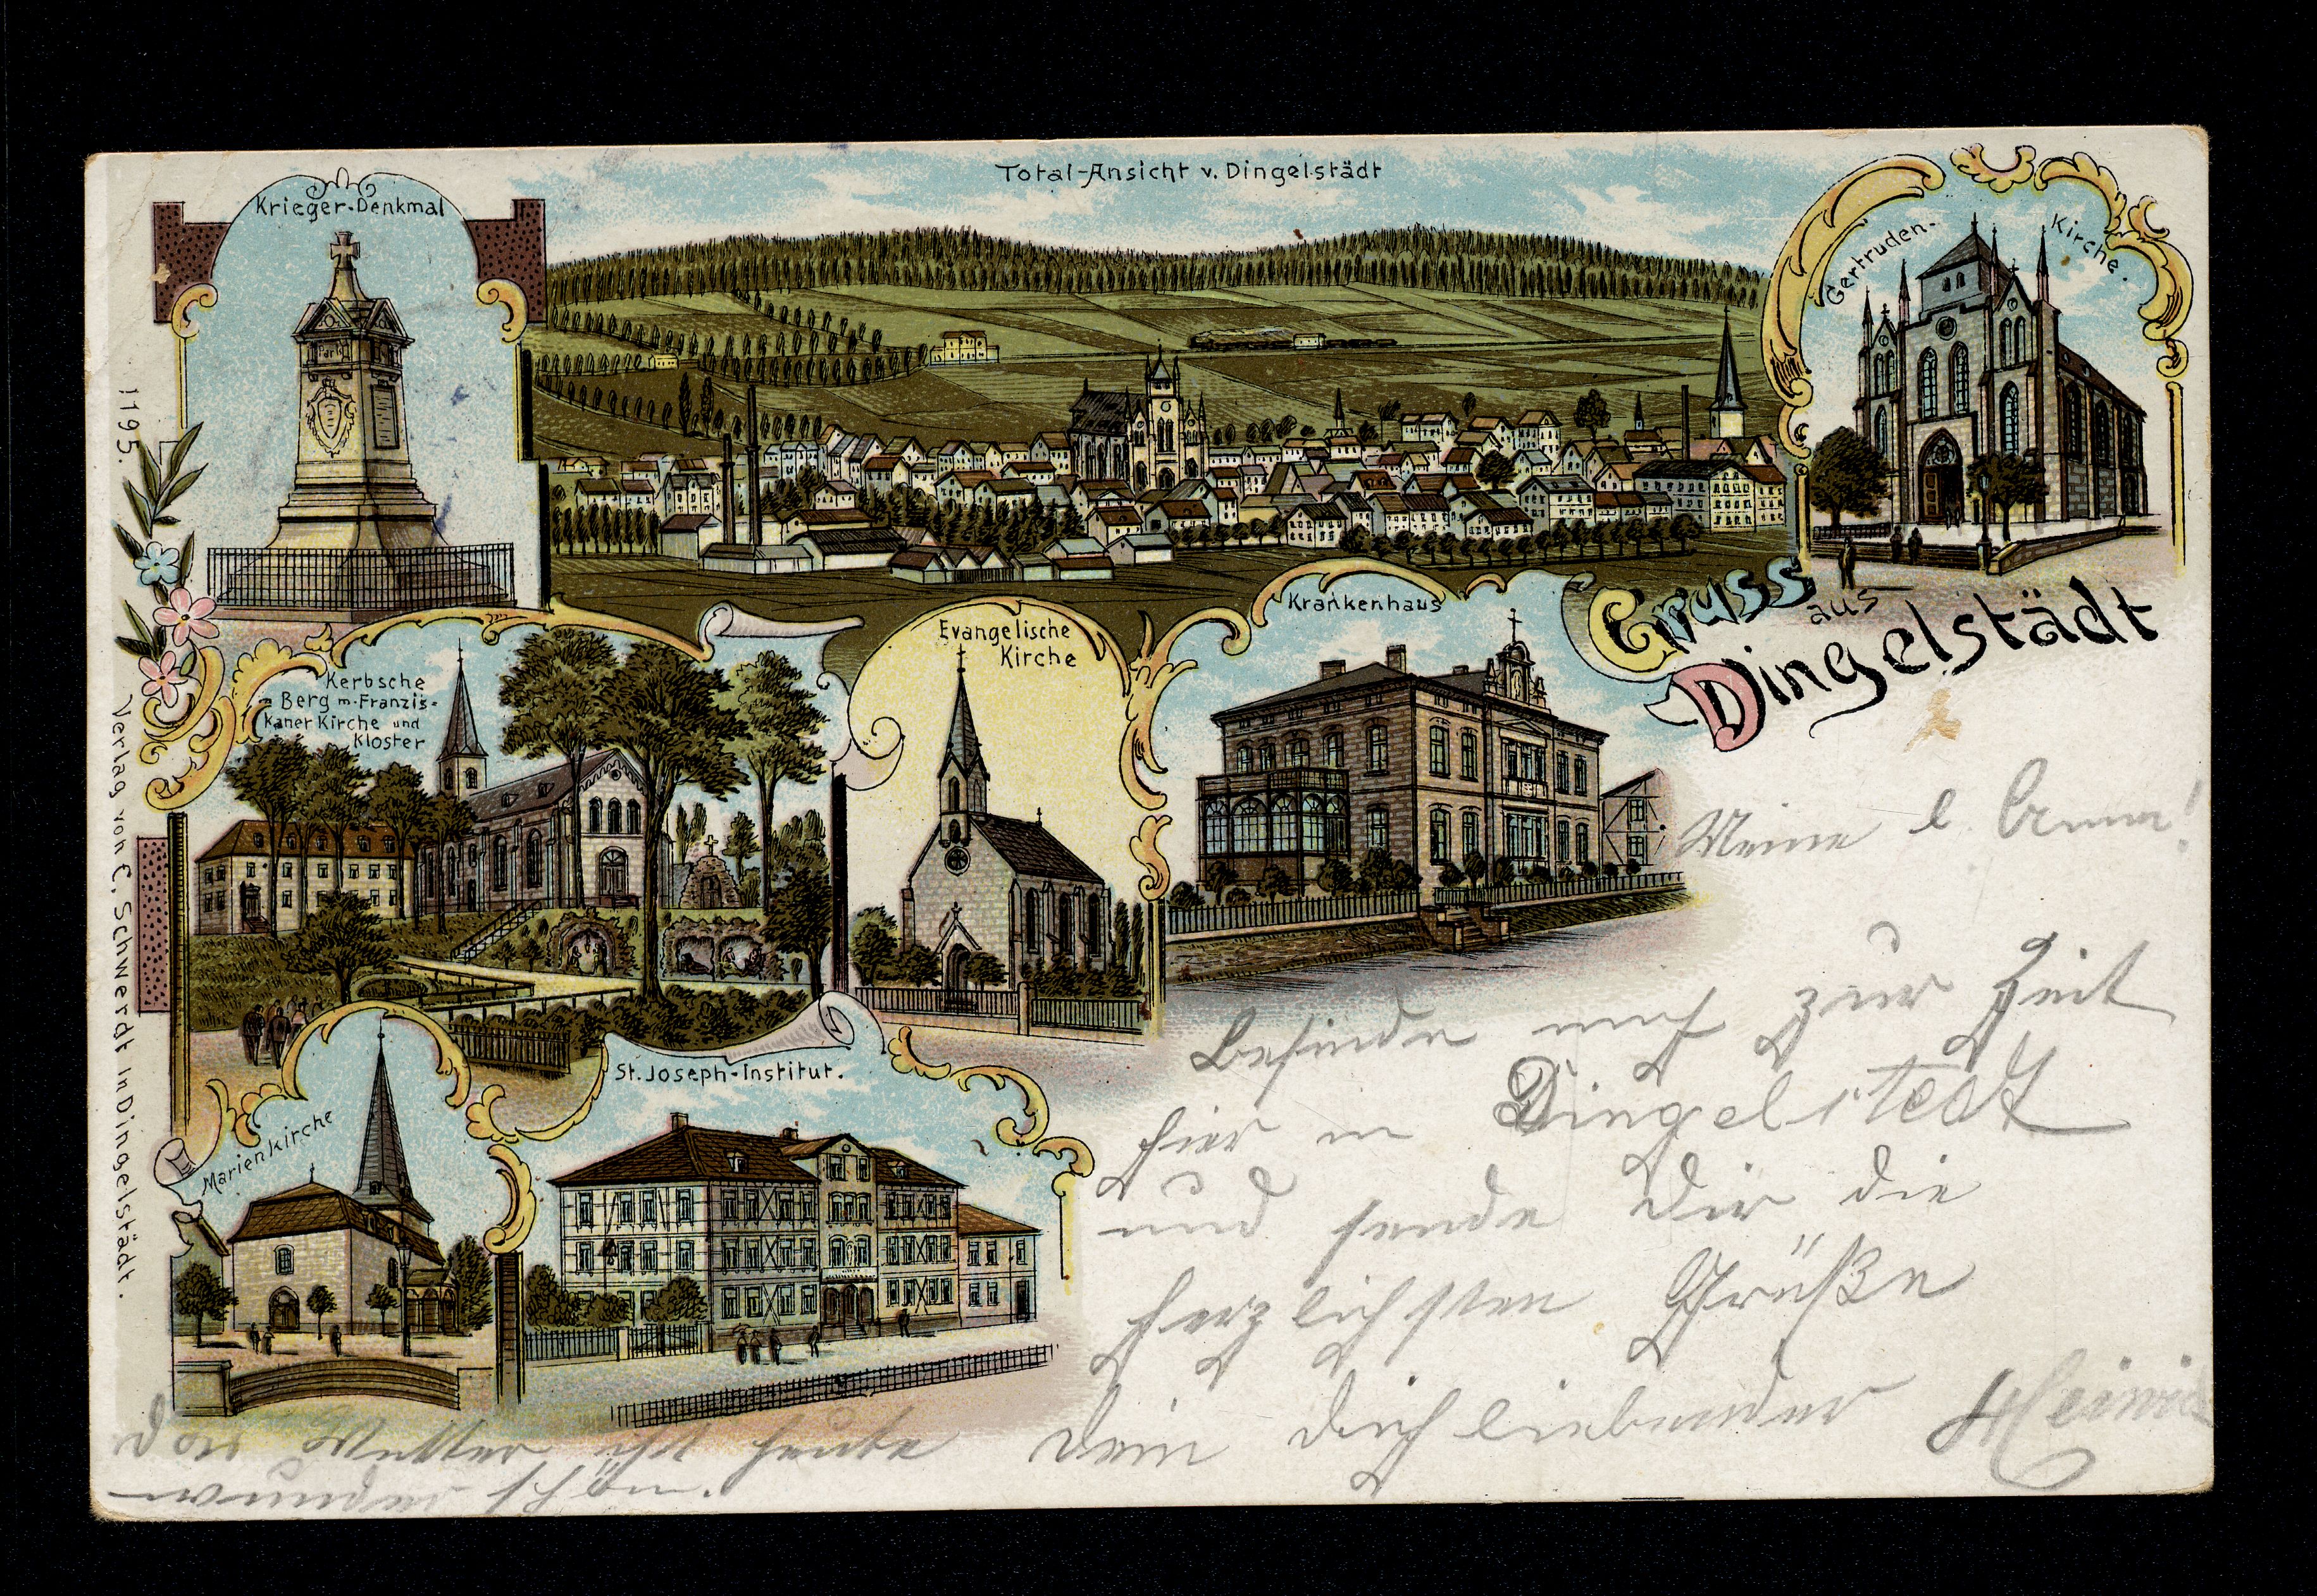 Total-Ansicht v. Dingelstädt
Krieger-Denkmal
Paris
Gertruden-
Kirche.
Gruss
aus
Dingelstädt
Krankenhaus
Evangelische
Kirche
Kerbsche
Berg m. Franzis-
kaner Kirche und
Kloster
St. Joseph-Institut.
Marienkirche
1195.
Verlag von C. Schwerdt in Dingelstädt.
Meine l. !
Befinde mich zur Zeit
hier in Dingelstedt
und sende Dir die
herzlichsten Grüße
Dein Dich liebender
Das Wetter ist heute
wunder schön.